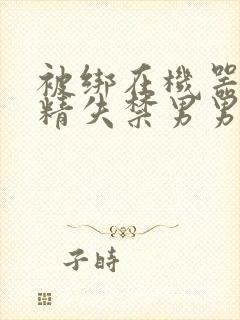 被绑在機器
精失禁男男
子時